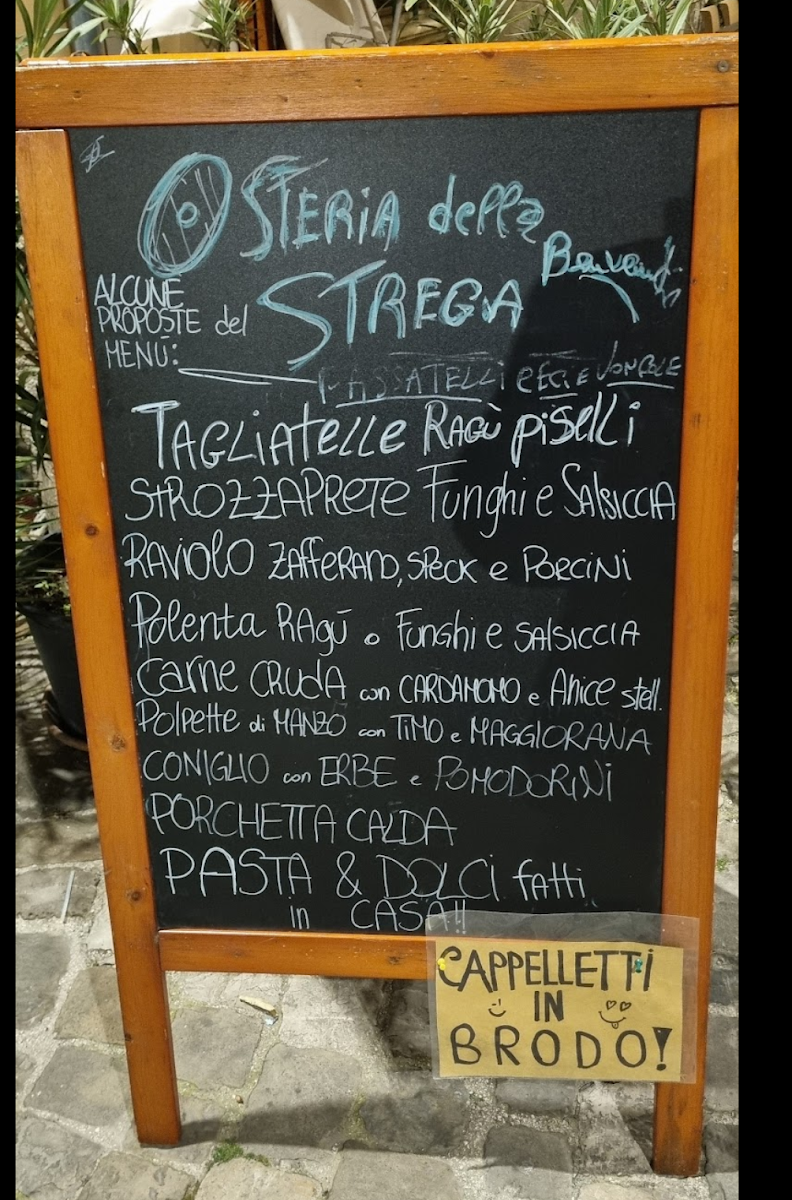 OSTERIA della
Benvenuti
STREGA
ALCUNE
PROPOSTE del
MENÙ:
PASSATELLI CECI E VONGOLE
TAGLIATELLE RAGÙ PISELLI
STROZZAPRETE FUNGHI e SALSICCIA
RAVIOLO ZAFFERANO, SPECK e PORCINI
Polenta RAGÙ o FUNGHI e SALSICCIA
CARNE CRUDA con CARDAMOMO e ANICE stell.
Polpette di MANZO con TIMO e MAGGIORANA
CONIGLIO con ERBE e POMODORINI
PORCHETTA CALDA
PASTA & DOLCI fatti
in CASA!!
CAPPELLETTI
IN
BRODO!